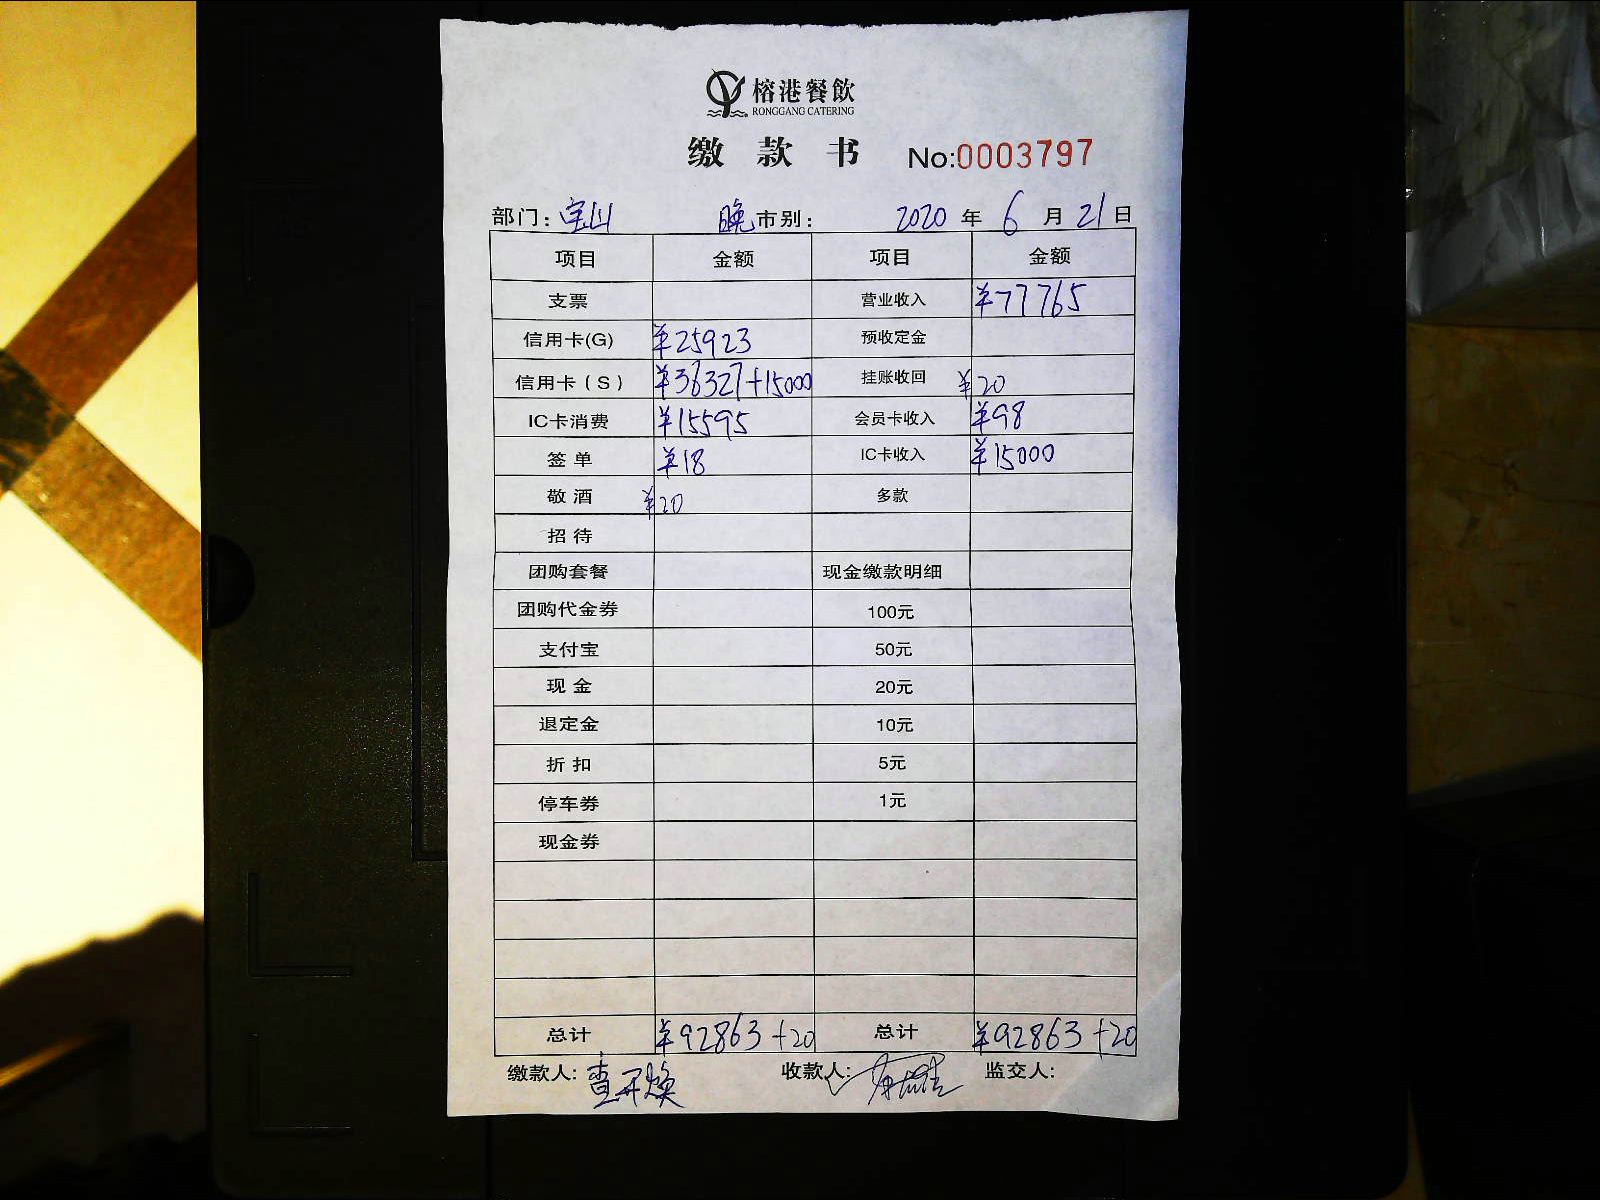 榕港餐飲
RONGGANG CATERING
缴款书 No:0003797
部门：宝山 晚市别： 2020年6月21日
项目 金额 项目 金额
支票 营业收入 ¥77765
信用卡(G) ¥25923 预收定金
信用卡（S） ¥36327+15000 挂账收回 ¥20
IC卡消费 ¥15595 会员卡收入 ¥98
签单 ¥18 IC卡收入 ¥15000
敬酒 ¥20 多款
招待
团购套餐 现金缴款明细
团购代金券 100元
支付宝 50元
现金 20元
退定金 10元
折扣 5元
停车券 1元
现金券
总计 ¥92863+20 总计 ¥92863+20
缴款人：查开焕 收款人： 监交人：